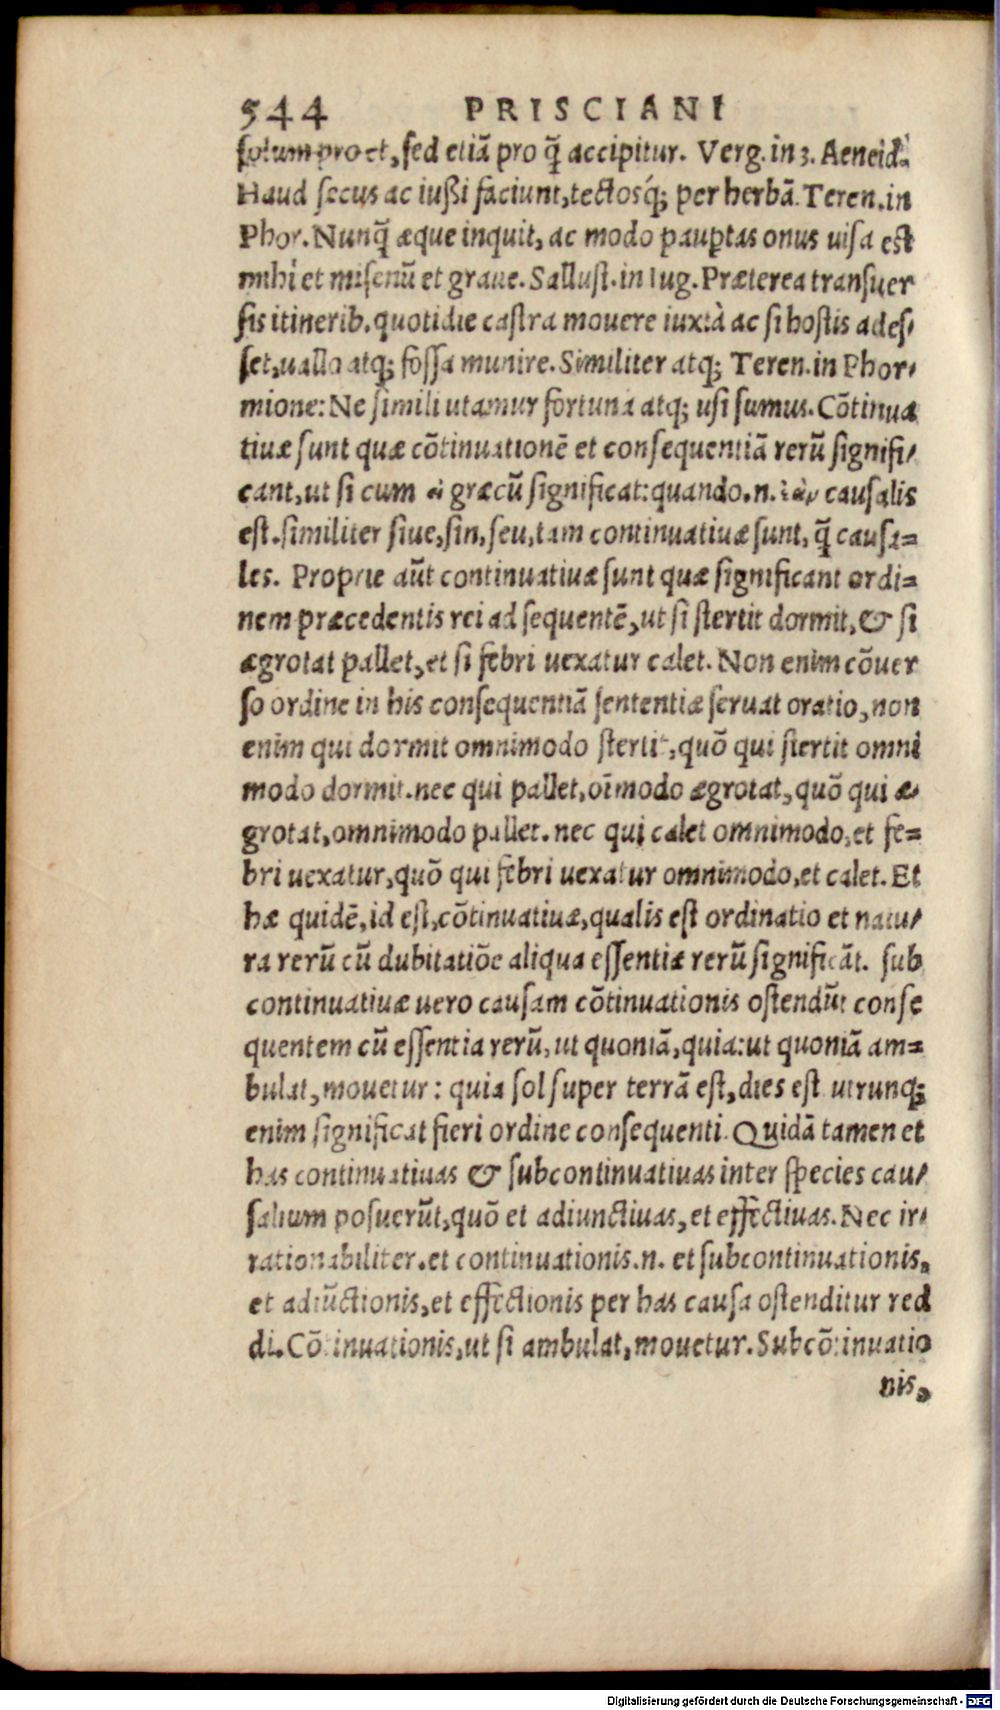 544 PRISCIANI
solum pro et, sed etiã pro q̃ accipitur. Verg. in 3. Aeneid.
Haud secus ac iußi faciunt, tectosq́; per herbã. Teren. in
Phor. Nunq̃ æque inquit, ac modo paup̱tas onus uisa est
mihi et miserũ et graue. Sallust. in Iug. Præterea transuer
sis itinerib. quotidie castra mouere iuxtà ac si hostis ades/
set, uallo atq; fossa munire. Similiter atq; Teren. in Phor/
mione: Ne simili utamur fortuna atq; usi sumus. Cõtinua
tiuæ sunt quæ cõtinuationẽ et consequentiã rerũ signifi/
cant, ut si cum græcũ significat: quando. n. causalis
est. similiter siue, sin, seu, tam continuatiuæ sunt, q̃ causa=
les. Proprie aũt continuatiuæ sunt quæ significant ordi=
nem præcedentis rei ad sequentẽ, ut si stertit dormit, & si
ægrotat pallet, et si febri uexatur calet. Non enim cõuer
so ordine in his consequentiã sententiæ seruat oratio, non
enim qui dormit omnimodo stertit, quõ qui stertit omni
modo dormit. nec qui pallet, oĩmodo ægrotat, quõ qui æ/
grotat, omnimodo pallet. nec qui calet omnimodo, et fe=
bri uexatur, quõ qui febri uexatur omnimodo, et calet. Et
hæ quidẽ, id est, cõtinuatiuæ, qualis est ordinatio et natu/
ra rerũ cũ dubitatiõe aliqua essentiæ rerũ significãt. sub
continuatiuæ uero causam cõtinuationis ostendũt conse
quentem cũ essentia rerũ, ut quoniã, quia: ut quoniã am=
bulat, mouetur: quia sol super terrã est, dies est utrunq;
enim significat fieri ordine consequenti. Quidã tamen et
has continuatiuas & subcontinuatiuas inter species cau/
salium posuerũt, quõ et adiunctiuas, et effectiuas. Nec ir/
rationabiliter. et continuationis. n. et subcontinuationis,
et adiũctionis, et effectionis per has causa ostenditur red
di. Cõtinuationis, ut si ambulat, mouetur. Subcõtinuatio
nis,
Digitalisierung gefördert durch die Deutsche Forschungsgemeinschaft - DFG